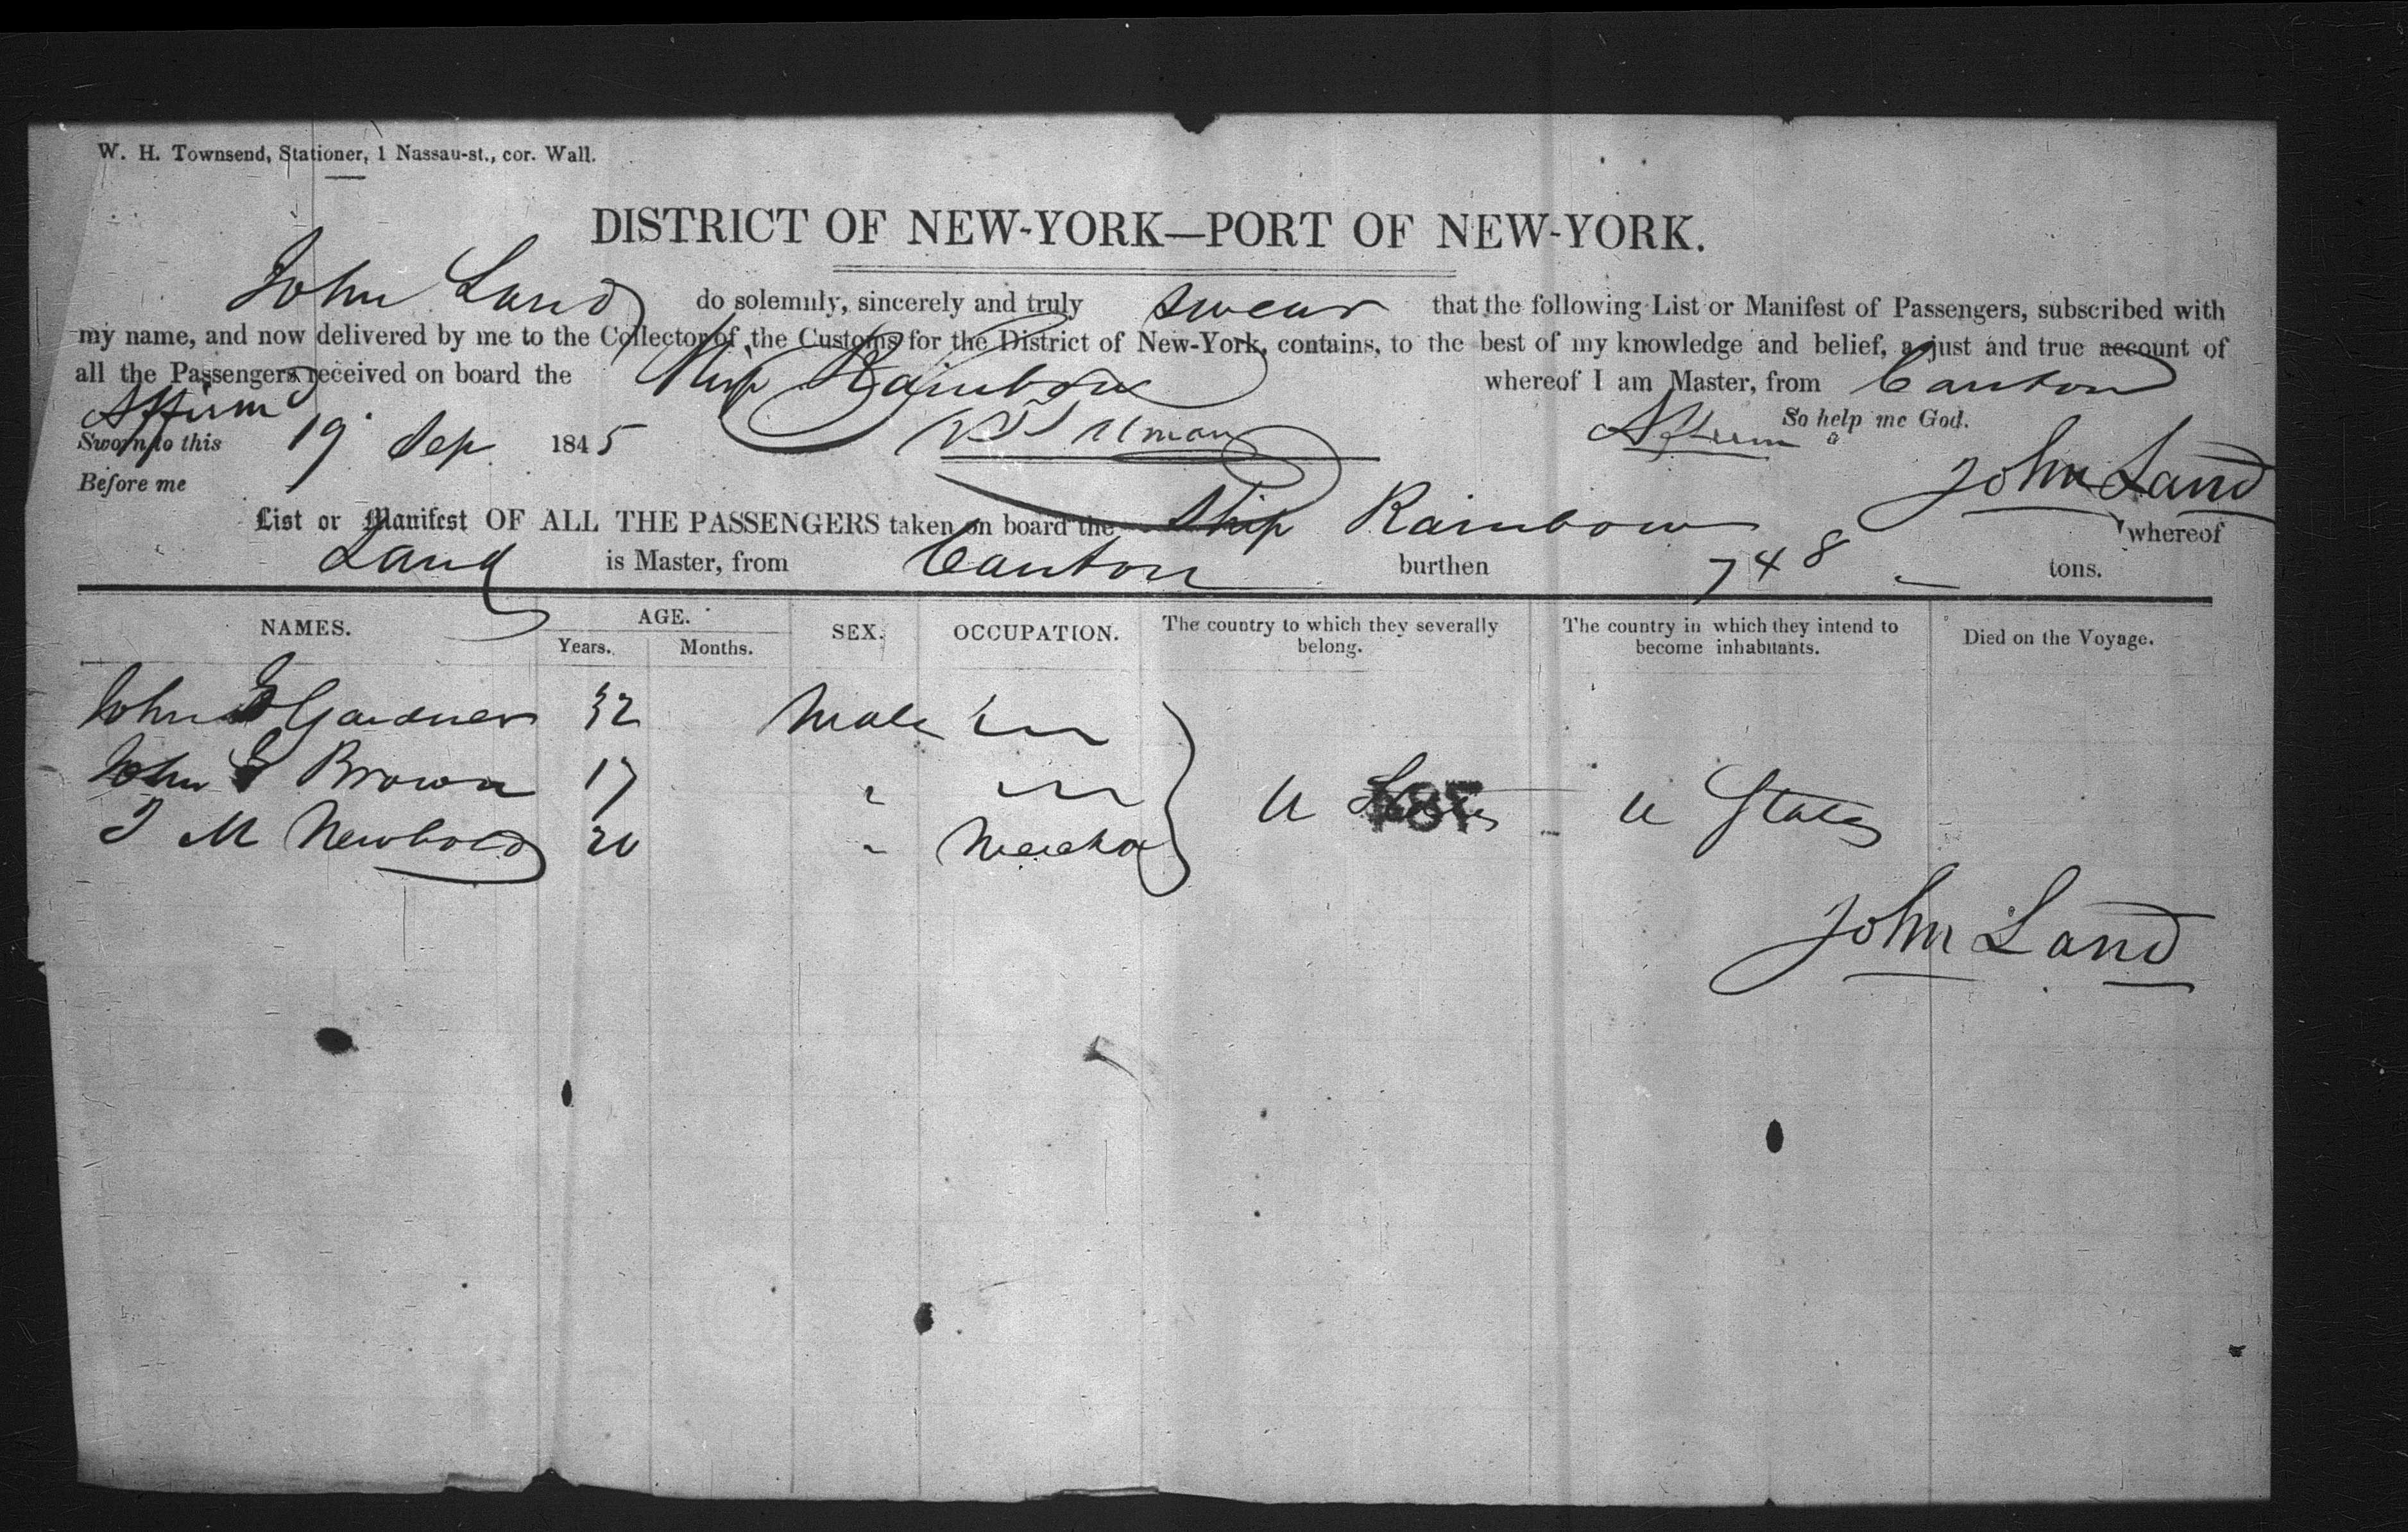 W. H. Townsend, Stationer, 1 Nassau-st., cor. Wall.
DISTRICT OF NEW-YORK—PORT OF NEW-YORK.
John Land do solemnly, sincerely and truly swear that the following List or Manifest of Passengers, subscribed with
my name, and now delivered by me to the Collector of the Customs for the District of New-York, contains, to the best of my knowledge and belief, a just and true account of
all the Passengers received on board the Ship Rainbow whereof I am Master, from Canton
Affirmd Affirm So help me God.
Sworn to this 19 Sep 1845
Before me John Land
List or Manifest OF ALL THE PASSENGERS taken on board the Ship Rainbow whereof
Land is Master, from Canton burthen 748 tons.
NAMES. AGE. SEX. OCCUPATION. The country to which they severally belong. The country in which they intend to become inhabitants. Died on the Voyage.
Years. Months.
John Gardner 32 Male
John Brown 17 "
J M Newbold 20 " U States U States
487
John Land